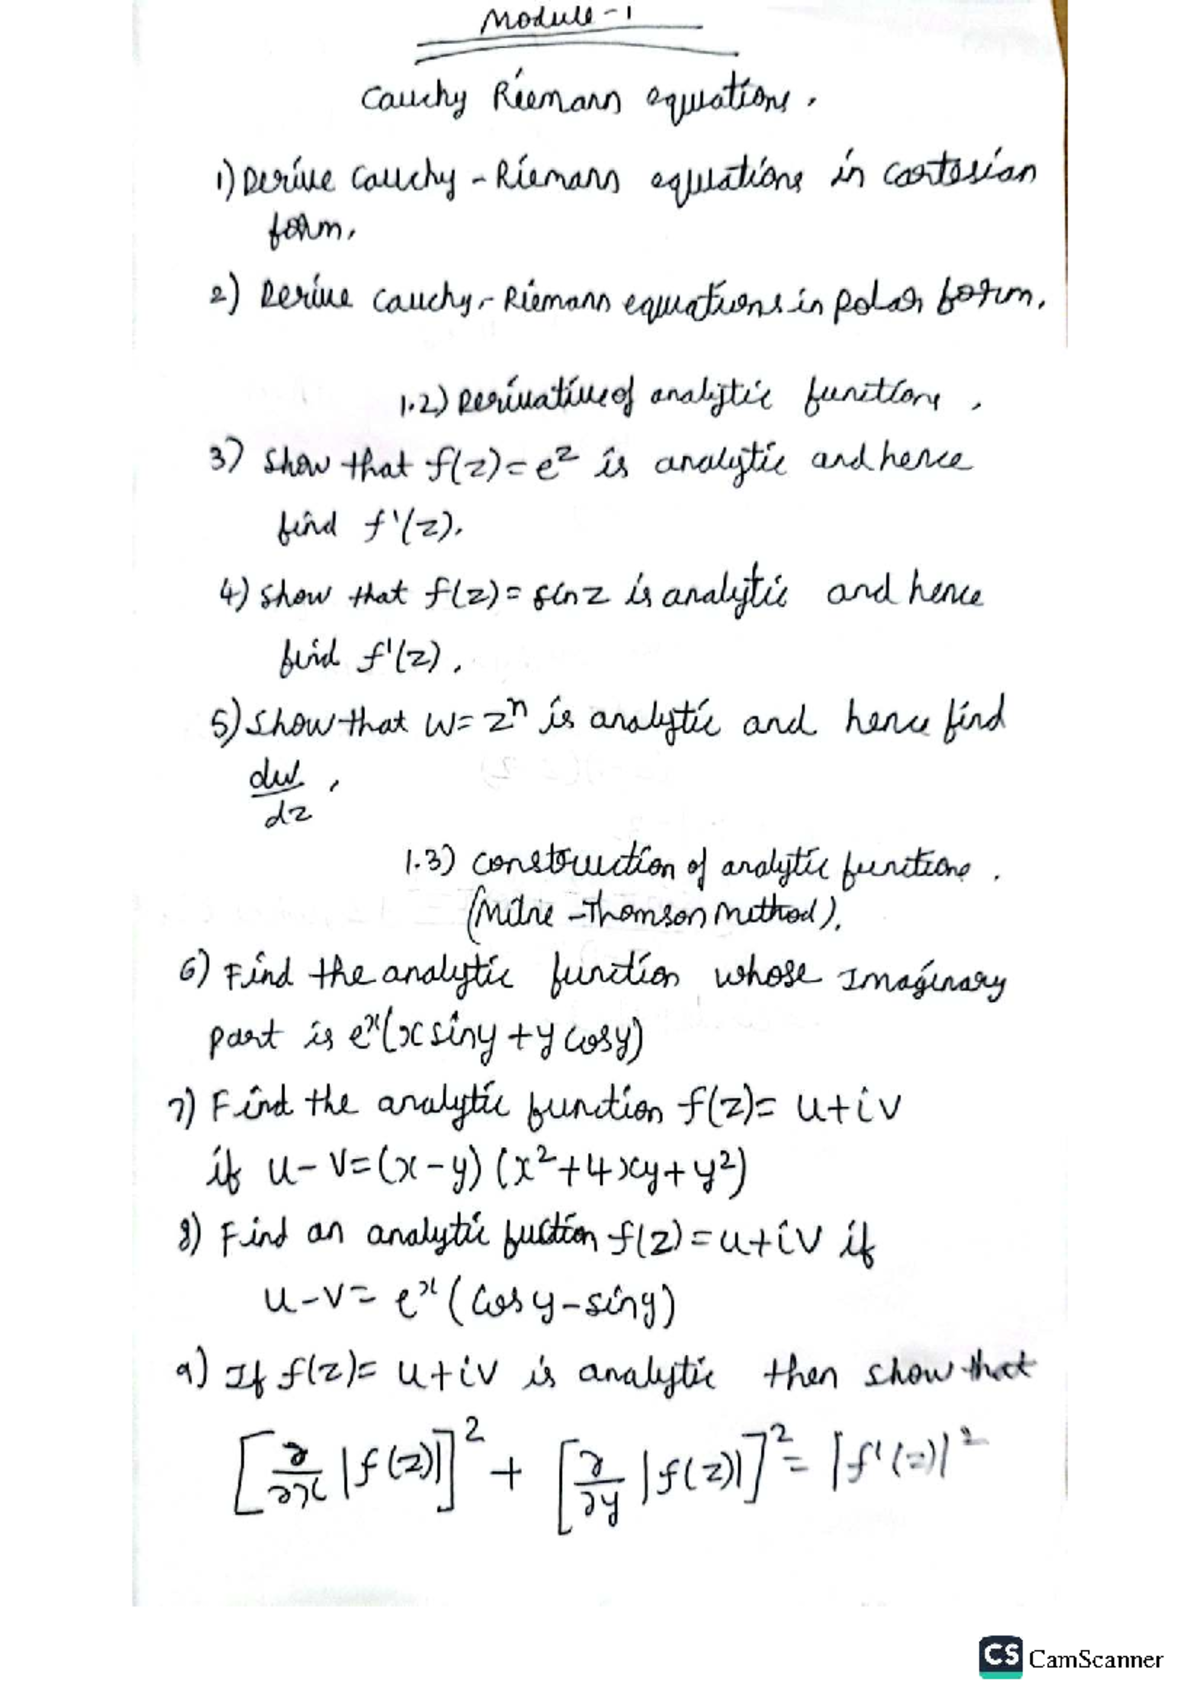 Module-1
Cauchy Riemann equations.
1) Derive Cauchy-Riemann equations in cartesian
form.
2) Derive Cauchy-Riemann equations in polar form.
1.2) Derivative of analytic functions.
3) Show that f(z)=e^z is analytic and hence
find f'(z).
4) Show that f(z)= sin z is analytic and hence
find f'(z).
5) Show that w=z^n is analytic and hence find
dw/dz.
1.3) construction of analytic functions.
(Milne-Thomson Method).
6) Find the analytic function whose Imaginary
part is e^x(x siny + y cosy)
7) Find the analytic function f(z)= u+iv
if u-v=(x-y)(x²+4xy+y²)
8) Find an analytic fuction f(z)=u+iv if
u-v= e^x(cosy-siny)
9) If f(z)= u+iv is analytic then show that
[∂/∂x |f(z)|]² + [∂/∂y |f(z)|]² = |f'(z)|²
CS CamScanner